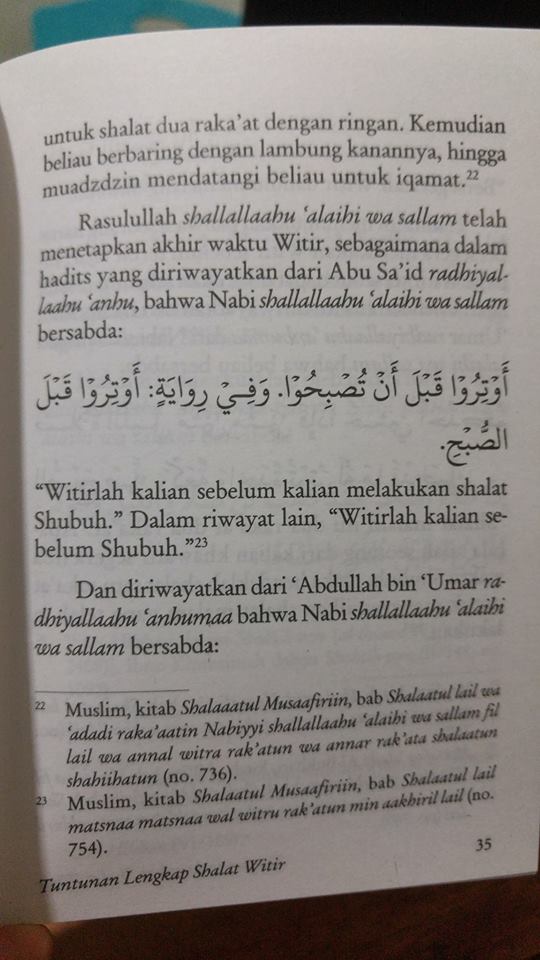 untuk shalat dua raka'at dengan ringan. Kemudian
beliau berbaring dengan lambung kanannya, hingga
muadzdzin mendatangi beliau untuk iqamat.²²
Rasulullah shallallaahu 'alaihi wa sallam telah
menetapkan akhir waktu Witir, sebagaimana dalam
hadits yang diriwayatkan dari Abu Sa'id radhiyal-
laahu 'anhu, bahwa Nabi shallallaahu 'alaihi wa sallam
bersabda:
أَوْتِرُوْا قَبْلَ أَنْ تُصْبِحُوْا. وَفِيْ رِوَايَةٍ: أَوْتِرُوْا قَبْلَ
الصُّبْحِ.
“Witirlah kalian sebelum kalian melakukan shalat
Shubuh.” Dalam riwayat lain, “Witirlah kalian se-
belum Shubuh.”²³
Dan diriwayatkan dari ‘Abdullah bin ‘Umar ra-
dhiyallaahu ‘anhumaa bahwa Nabi shallallaahu ‘alaihi
wa sallam bersabda:
²² Muslim, kitab Shalaaatul Musaafiriin, bab Shalaatul lail wa
‘adadi raka’aatin Nabiyyi shallallaahu ‘alaihi wa sallam fil
lail wa annal witra rak’atun wa annar rak’ata shalaatun
shahiihatun (no. 736).
²³ Muslim, kitab Shalaatul Musaafiriin, bab Shalaatul lail
matsnaa matsnaa wal witru rak’atun min aakhiril lail (no.
754).
35
Tuntunan Lengkap Shalat Witir